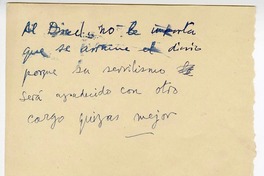 Al no le importa
que se arruine el diario
porque su servilismo
será agradecido con otro
cargo quizas mejor